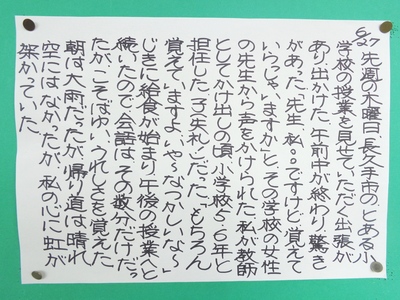 6/27
先週の木曜日、長久手市の、とある小
学校の授業を見せていただく出張が
あり出かけた。午前中が終わり、驚き
があった。「先生、私○○ですけど覚えて
いらっしゃいますか」と、その学校の女性
の先生から声をかけられた。私が教師
としてかけ出しの頃、小学校5・6年と
担任した子(失礼)だった。「もちろん
覚えてますよ。いや〜なつかしいな〜」
じきに給食が始まり、午後の授業へと
続いたので、会話はその数分だけだっ
たが、こそばゆいうれしさを覚えた。
朝は大雨だったが、帰り道は晴れ。
空にはなかったが、私の心に虹が
架かていた。